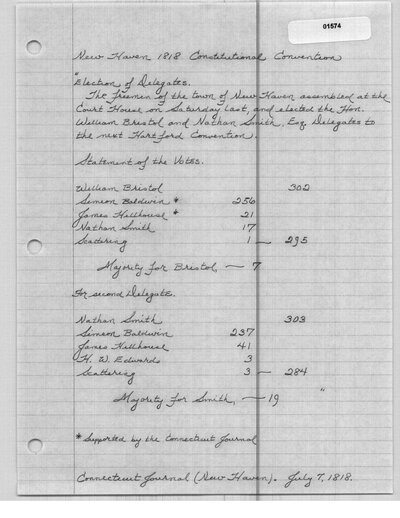 01574
New Haven 1818 Constitutional Convention
"Election of Delegates.
The freemen of the town of New Haven assembled at the
Court House on Saturday last, and elected the Hon.
William Bristol and Nathan Smith, Esq. Delegates to
the next Hartford Convention.
Statement of the Votes.
William Bristol 302
Simeon Baldwin * 256
James Hillhouse * 21
Nathan Smith 17
Scattering 1 — 295
Majority for Bristol, — 7
For second Delegate.
Nathan Smith 303
Simeon Baldwin 237
James Hillhouse 41
H. W. Edwards 3
Scattering 3 — 284
Majority for Smith, — 19 "
* Supported by the Connecticut Journal
Connecticut Journal (New Haven). July 7, 1818.